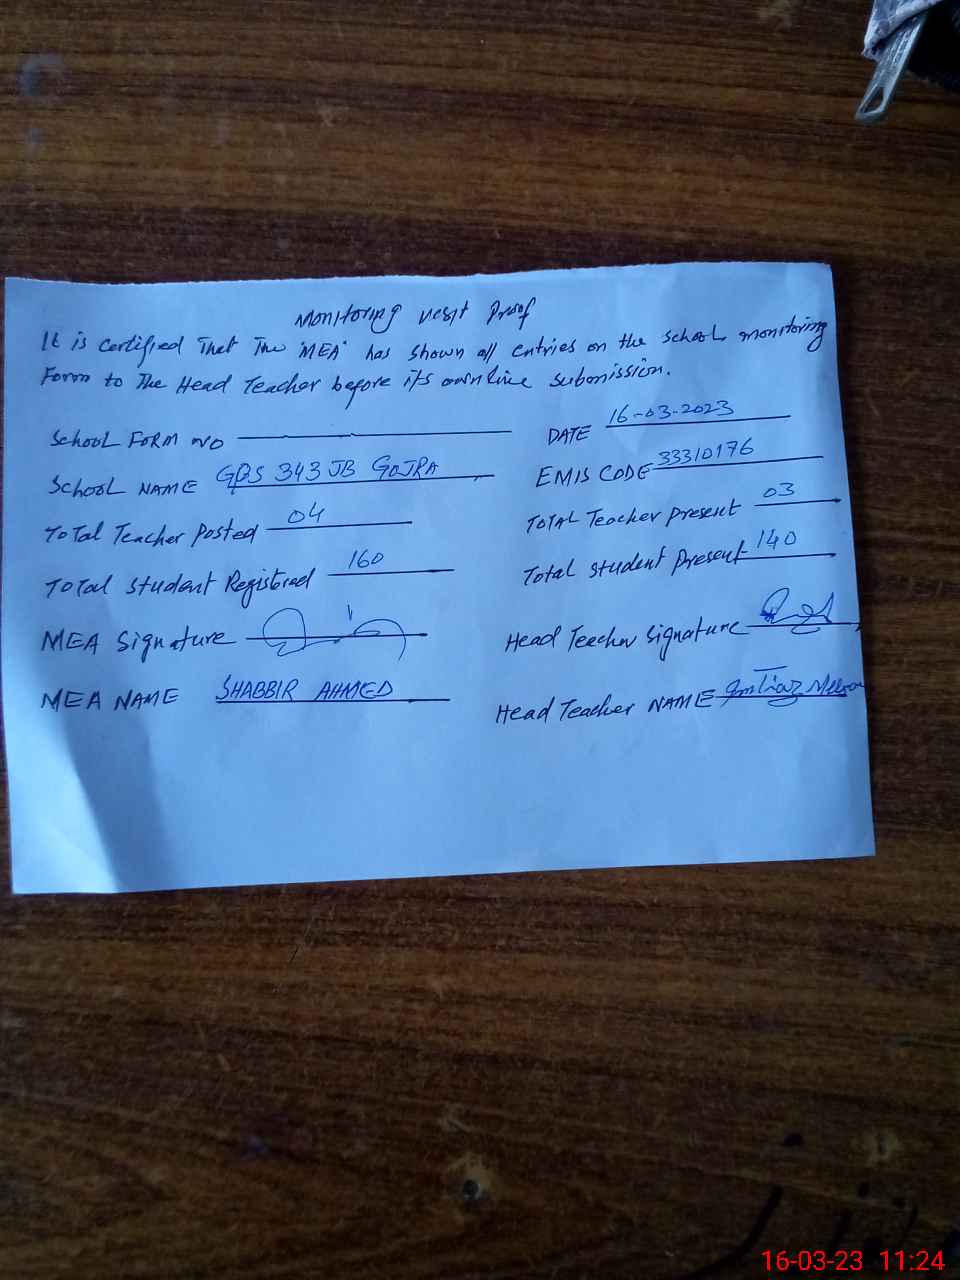 Monitoring visit Proof
It is certified That The 'MEA' has shown all entries on the school monitoring
Form to The Head Teacher before its ownline submission.
School FORM NO
DATE 16-03-2023
School NAME GPS 343 JB GOJRA
EMIS CODE 33310176
Total Teacher Posted 04
Total Teacher present 03
Total student Registered 160
Total student Present 140
MEA Signature
Head Teacher Signature
MEA NAME SHABBIR AHMED
Head Teacher NAME Imtiaz
16-03-23 11:24